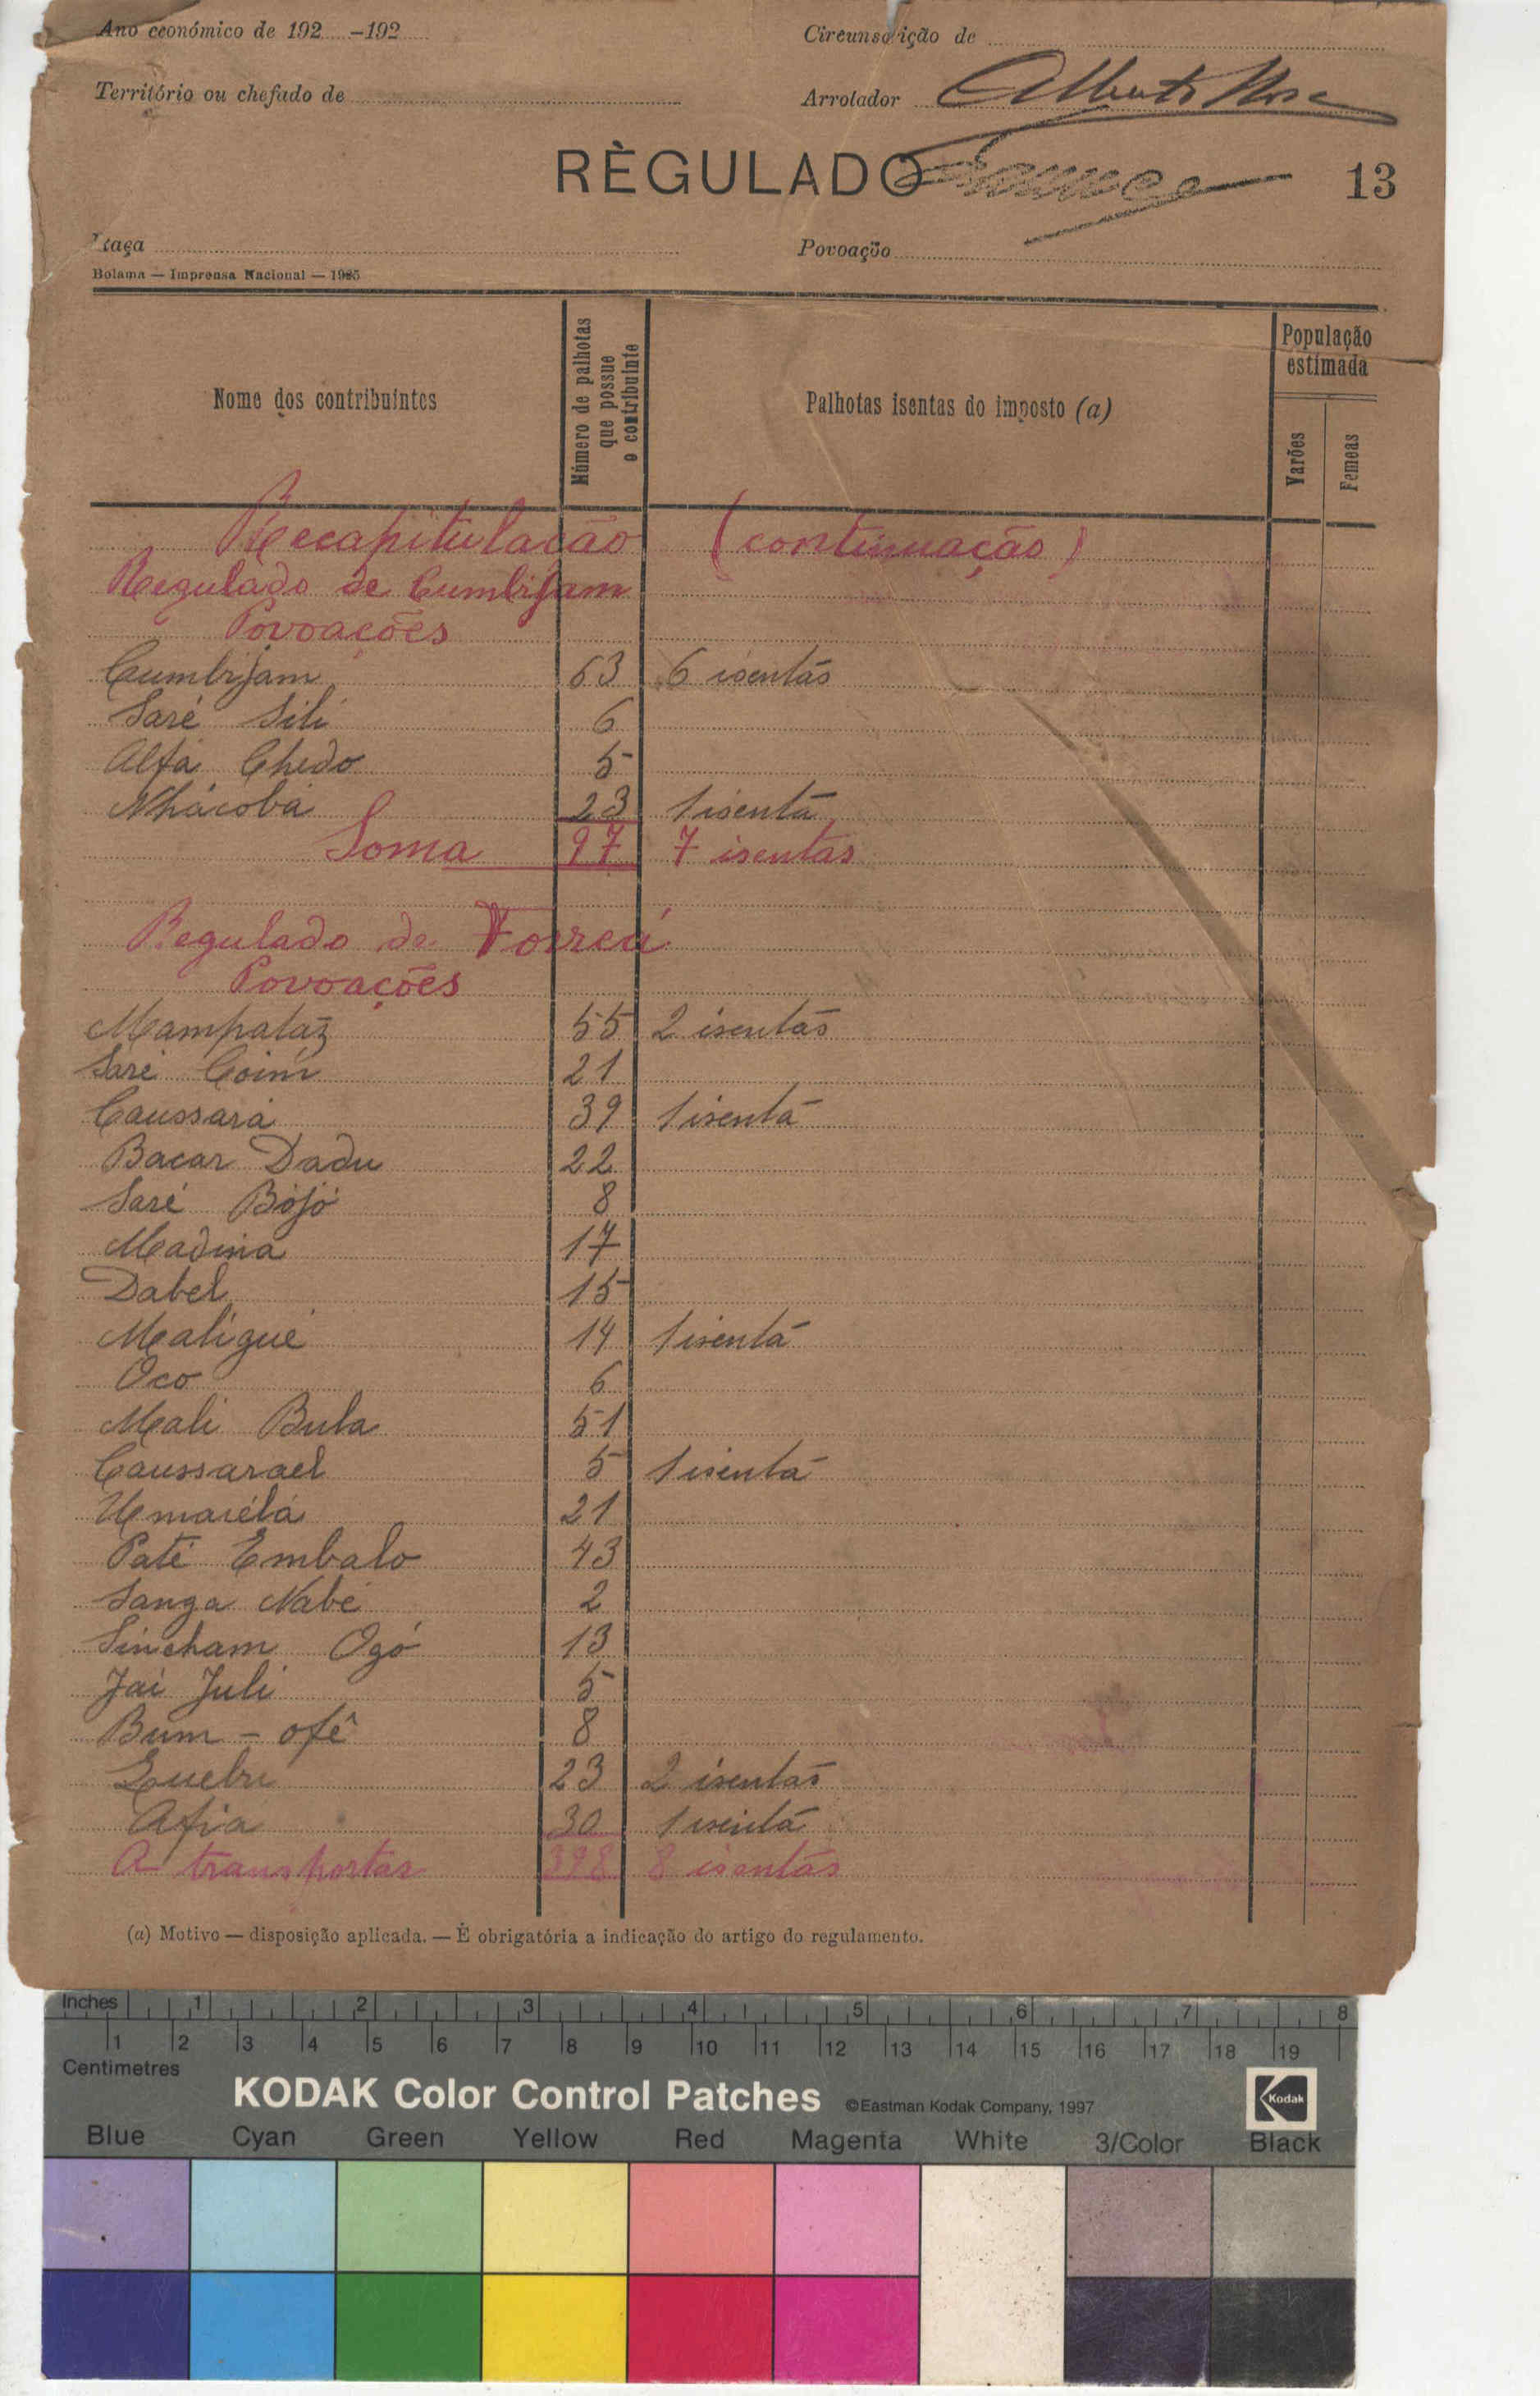 Ano económico de 192 -192
Circunscrição de
Território ou chefado de
Arrolador Alberto
RÈGULADO 13
Raça
Povoação
Bolama — Imprensa Nacional — 1925
Nome dos contribuintes
Número de palhotas que possue o contribuinte
Palhotas isentas do imposto (a)
População estimada
Varões
Femeas
Recapitulação (continuação)
Regulado de Cumbijam
Povoações
Cumbijam 63 6 isentas
Saré Sili 6
Alfá Chedo 5
Nhácobá 23 1 isenta
Soma 97 7 isentas
Regulado de Forreá
Povoações
Mampatáz 55 2 isentas
Saré Coim 21
Caussará 39 1 isenta
Bacar Dadu 22
Saré Bójó 8
Madina 17
Dabel 15
Maligué 14 1 isenta
Oco 6
Mali Bula 51
Caussarael 5 1 isenta
Umaiélá 21
Paté Embalo 43
Sanga Nabé 2
Sincham Ogó 13
Jai Juli 5
Bum - ofê 8
Quebu 23 2 isentas
Afia 30 1 isenta
A transportar 398 8 isentas
(a) Motivo — disposição aplicada. — É obrigatória a indicação do artigo do regulamento.
Inches 1 2 3 4 5 6 7 8
1 2 3 4 5 6 7 8 9 10 11 12 13 14 15 16 17 18 19
Centimetres
KODAK Color Control Patches ©Eastman Kodak Company, 1997 Kodak
Blue Cyan Green Yellow Red Magenta White 3/Color Black